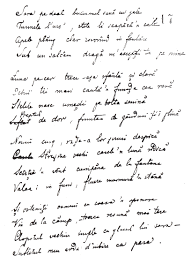 Sara pe deal buciumul sună cu jale
Turmele-l urc, stele le scapără-n cale
Apele plâng clar isvorând în fântâne
Sub un salcâm dragă m-aștepți tu pe mine
Luna pe cer trece-așa sfântă și clară
Ochii tăi mari caută-n frunza cea rară
Stelele nasc umezi pe bolta senină
Pieptul de dor, fruntea de gânduri ți-i plină
Nourii curg, raze-a lor șiruri despică
Streșine vechi casele-n lună ridică
Scârțâie-n vânt cumpăna de la fântână
Valea-i în fum, fluere murmură-n stână
Și osteniți oameni cu coasa-n spinare
Vin de la câmp, toaca răsună mai tare
Clopotul vechiu împle cu glasul lui sara
Sufletul meu arde-n iubire ca para.